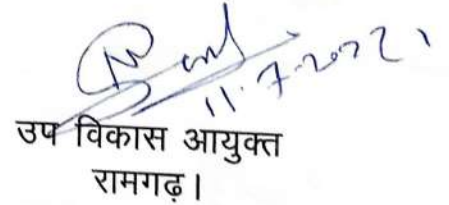 11.7.2022
उप विकास आयुक्त
रामगढ़।